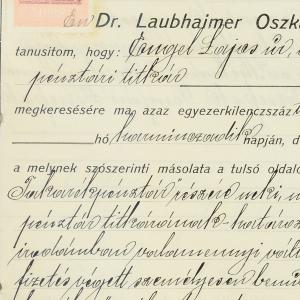 Én Dr. Laubhajmer Oszká
tanusitom, hogy: Engel Lajos úr,
pénztári titkár
megkeresésére ma, azaz egyezerkilenczszáz
hó harminczadik napján, d
a melynek szószerinti másolata a tulsó oldalo
Takarékpénztár részére neki,
pénztár titkárának határoz
irodámban valamennyi váltó
fizetés végett személyesen bemu